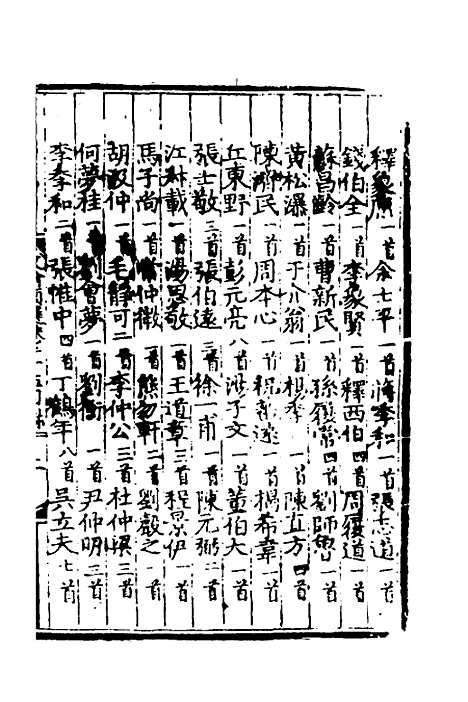 釋象 一首 余士平一首 梅季和一首 張志道一首
錢伯全一首 李象賢一首 釋西伯四首 周履道一首
蘇昌齡一首 曹新民一首 孫履常四首 劉師魯一首
黃松瀑一首 于介翁一首 祖季 一首 陳直方四首
陳 民一首 周本心一首 程 遠一首 楊希韋一首
丘東野一首 彭元亮八首 洪子文一首 董伯大一首
張士敬三首 張伯遠三首 徐一甫一首 陳元弼二首
江 載一首 湯思敬一首 王道章三首 程景伊一首
馬子尚一首 仲徵一首 熊勿軒二首 劉彀之一首
胡汲仲一首 毛靜可二首 李仲公三首 杜仲 三首
何夢桂一首 劉會夢一首 劉衡一首 尹仲明三首
李季和二首 張惟中四首 丁鶴年八首 吳立夫七首